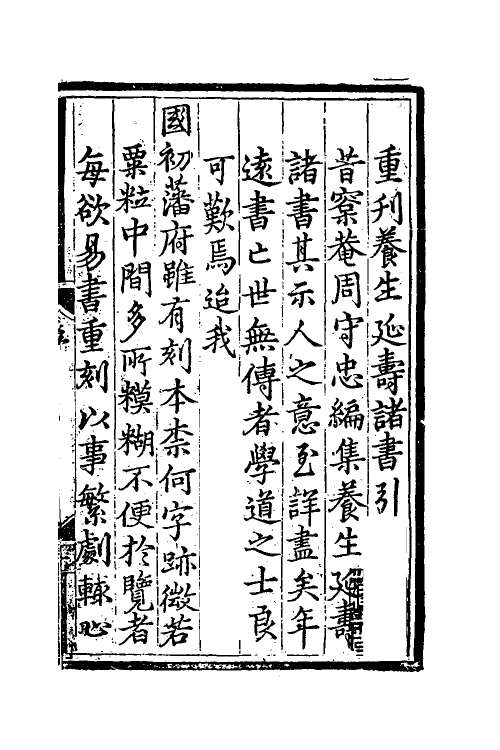 重刋養生延壽諸書引
昔寀菴周守忠編集養生延壽
諸書其示人之意至詳盡矣年
遠書亡世無傳者學道之士良
可歎焉迨我
國初藩府雖有刻本柰何字跡微若
粟粒中間多所糢糊不便於覽者
每欲易書重刻以事繁劇輙